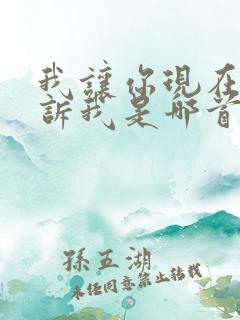 我讓你現在
訴我是哪首
孫五湖
未经同意禁止转载